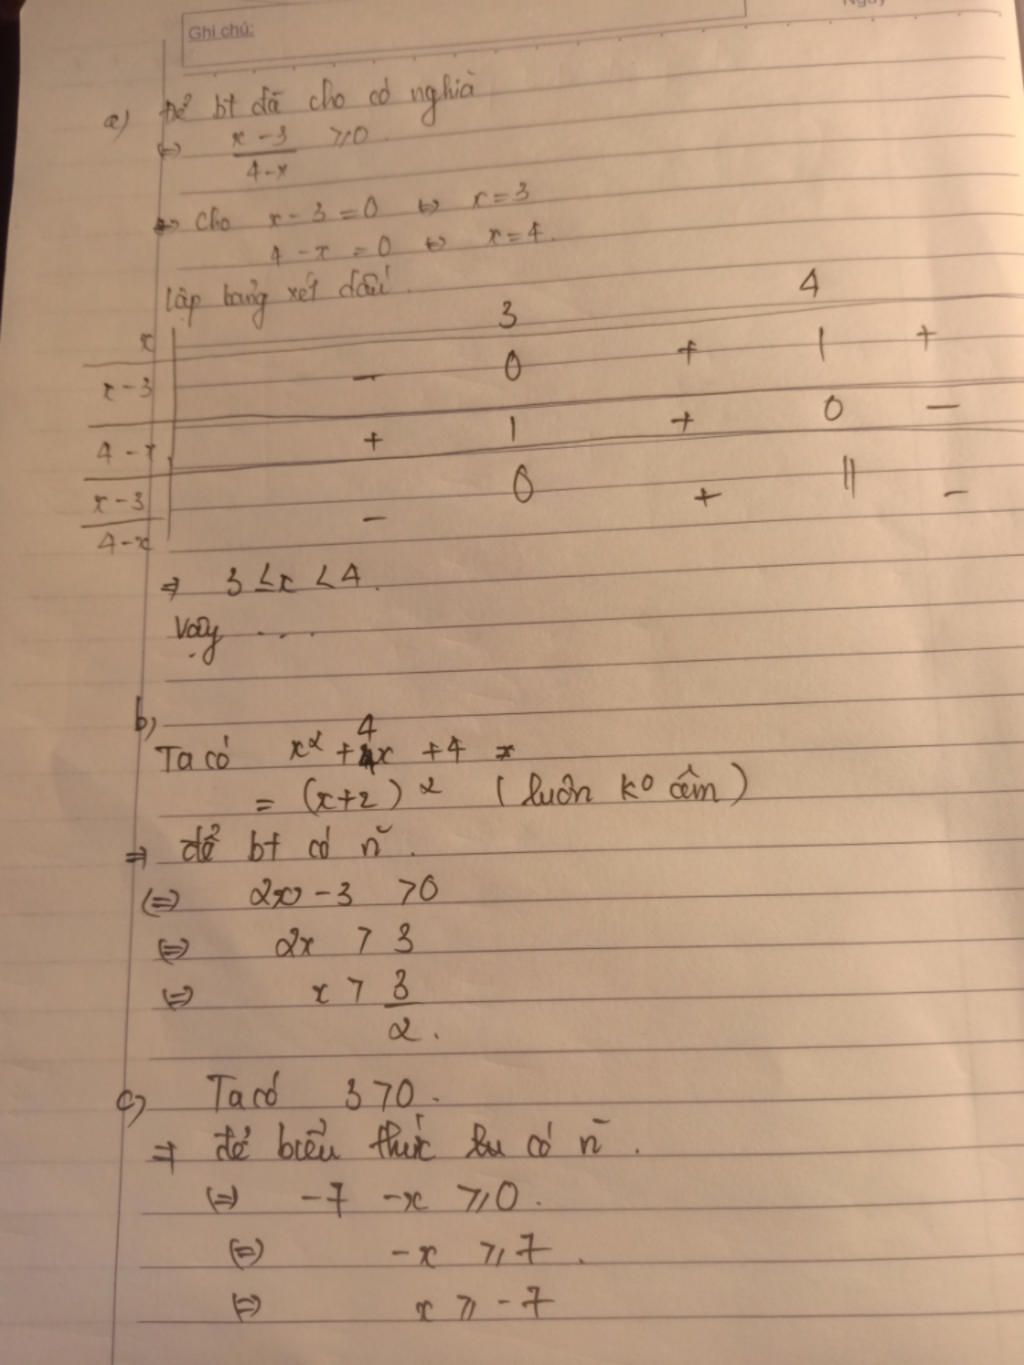 Ghi chú:
Ngày
a) Để bt đã cho có nghĩa
⇔ x - 3 / 4 - x ⩾ 0
⇔ Cho x - 3 = 0 ⇔ x = 3
4 - x = 0 ⇔ x = 4.
lập bảng xét dấu.
x 3 4
x - 3 - 0 + | +
4 - x + | + 0 -
x - 3 / 4 - x - 0 + || -
⇒ 3 ≤ x < 4.
Vậy ....
b)
Ta có x² + 4x + 4 =
= (x+2)² (luôn ko âm)
⇒ để bt có n̄.
⇔ 2x - 3 > 0
⇔ 2x > 3
⇔ x > 3/2.
c) Ta có 3 > 0.
⇒ để biểu thức có n̄.
⇔ -7 - x ⩾ 0.
⇔ -x ⩾ 7.
⇔ x ⩾ -7